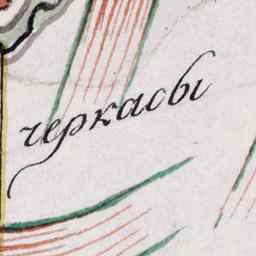 черкасы